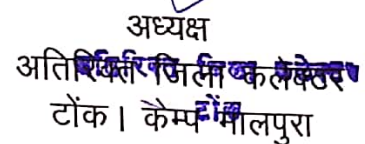 अध्यक्ष
अतिरिक्त जिला कलेक्टर
टोंक। कैम्प मालपुरा